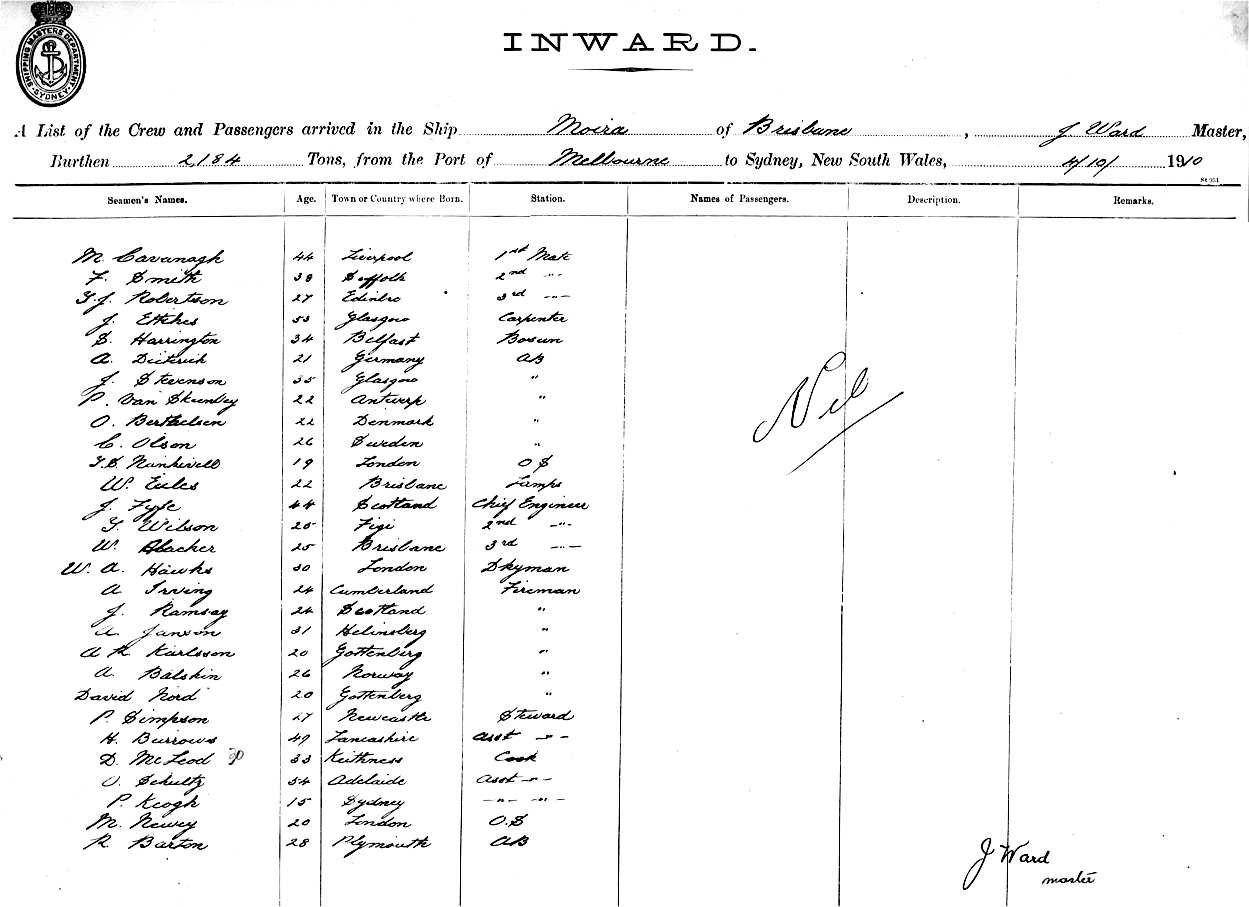 SHIPPING MASTERS DEPARTMENT
SYDNEY
INWARD.
A List of the Crew and Passengers arrived in the Ship Moira of Brisbane, J Ward Master,
Burthen 2184 Tons, from the Port of Melbourne to Sydney, New South Wales, 4/10/ 1910
Seamen's Names. Age. Town or Country where Born. Station. Names of Passengers. Description. Remarks.
M. Cavanagh 44 Liverpool 1st Mate
F. Smith 38 Suffolk 2nd -"-
T.J. Robertson 27 Edinbro 3rd -"-
J. 53 Glasgow Carpenter
S. Harrington 34 Belfast Bosun
A. Dieterich 21 Germany AB
J. Stevenson 35 Glasgow "
P. Van 22 Antwerp "
O. Berthelsen 22 Denmark "
C. Olson 26 Sweden "
T.S. Nankivell 19 London O S
W. Eules 22 Brisbane Lamps
J. Fyfe 44 Scotland Chief Engineer
T. Wilson 25 Figi 2nd -"-
W. 25 Brisbane 3rd -"-
W. A. Hawks 30 London Dkyman
A Irving 24 Cumberland Fireman
J. Ramsay 24 Scotland "
A. Janson 31 Helinsberg "
A R Karlsson 20 Gottenberg "
A. Balskin 26 Norway "
David Nord 20 Gottenberg "
P. Simpson 27 Newcastle Steward
H. Burrows 49 Lancashire Asst -"-
D. McLeod 33 Keithness Cook
O. Schultz 54 Adelaide Asst -"-
P. Keogh 15 Sydney -"- -"-
M. Newey 20 London O.S
R. Barton 28 Plymouth AB
Nil
J Ward
master